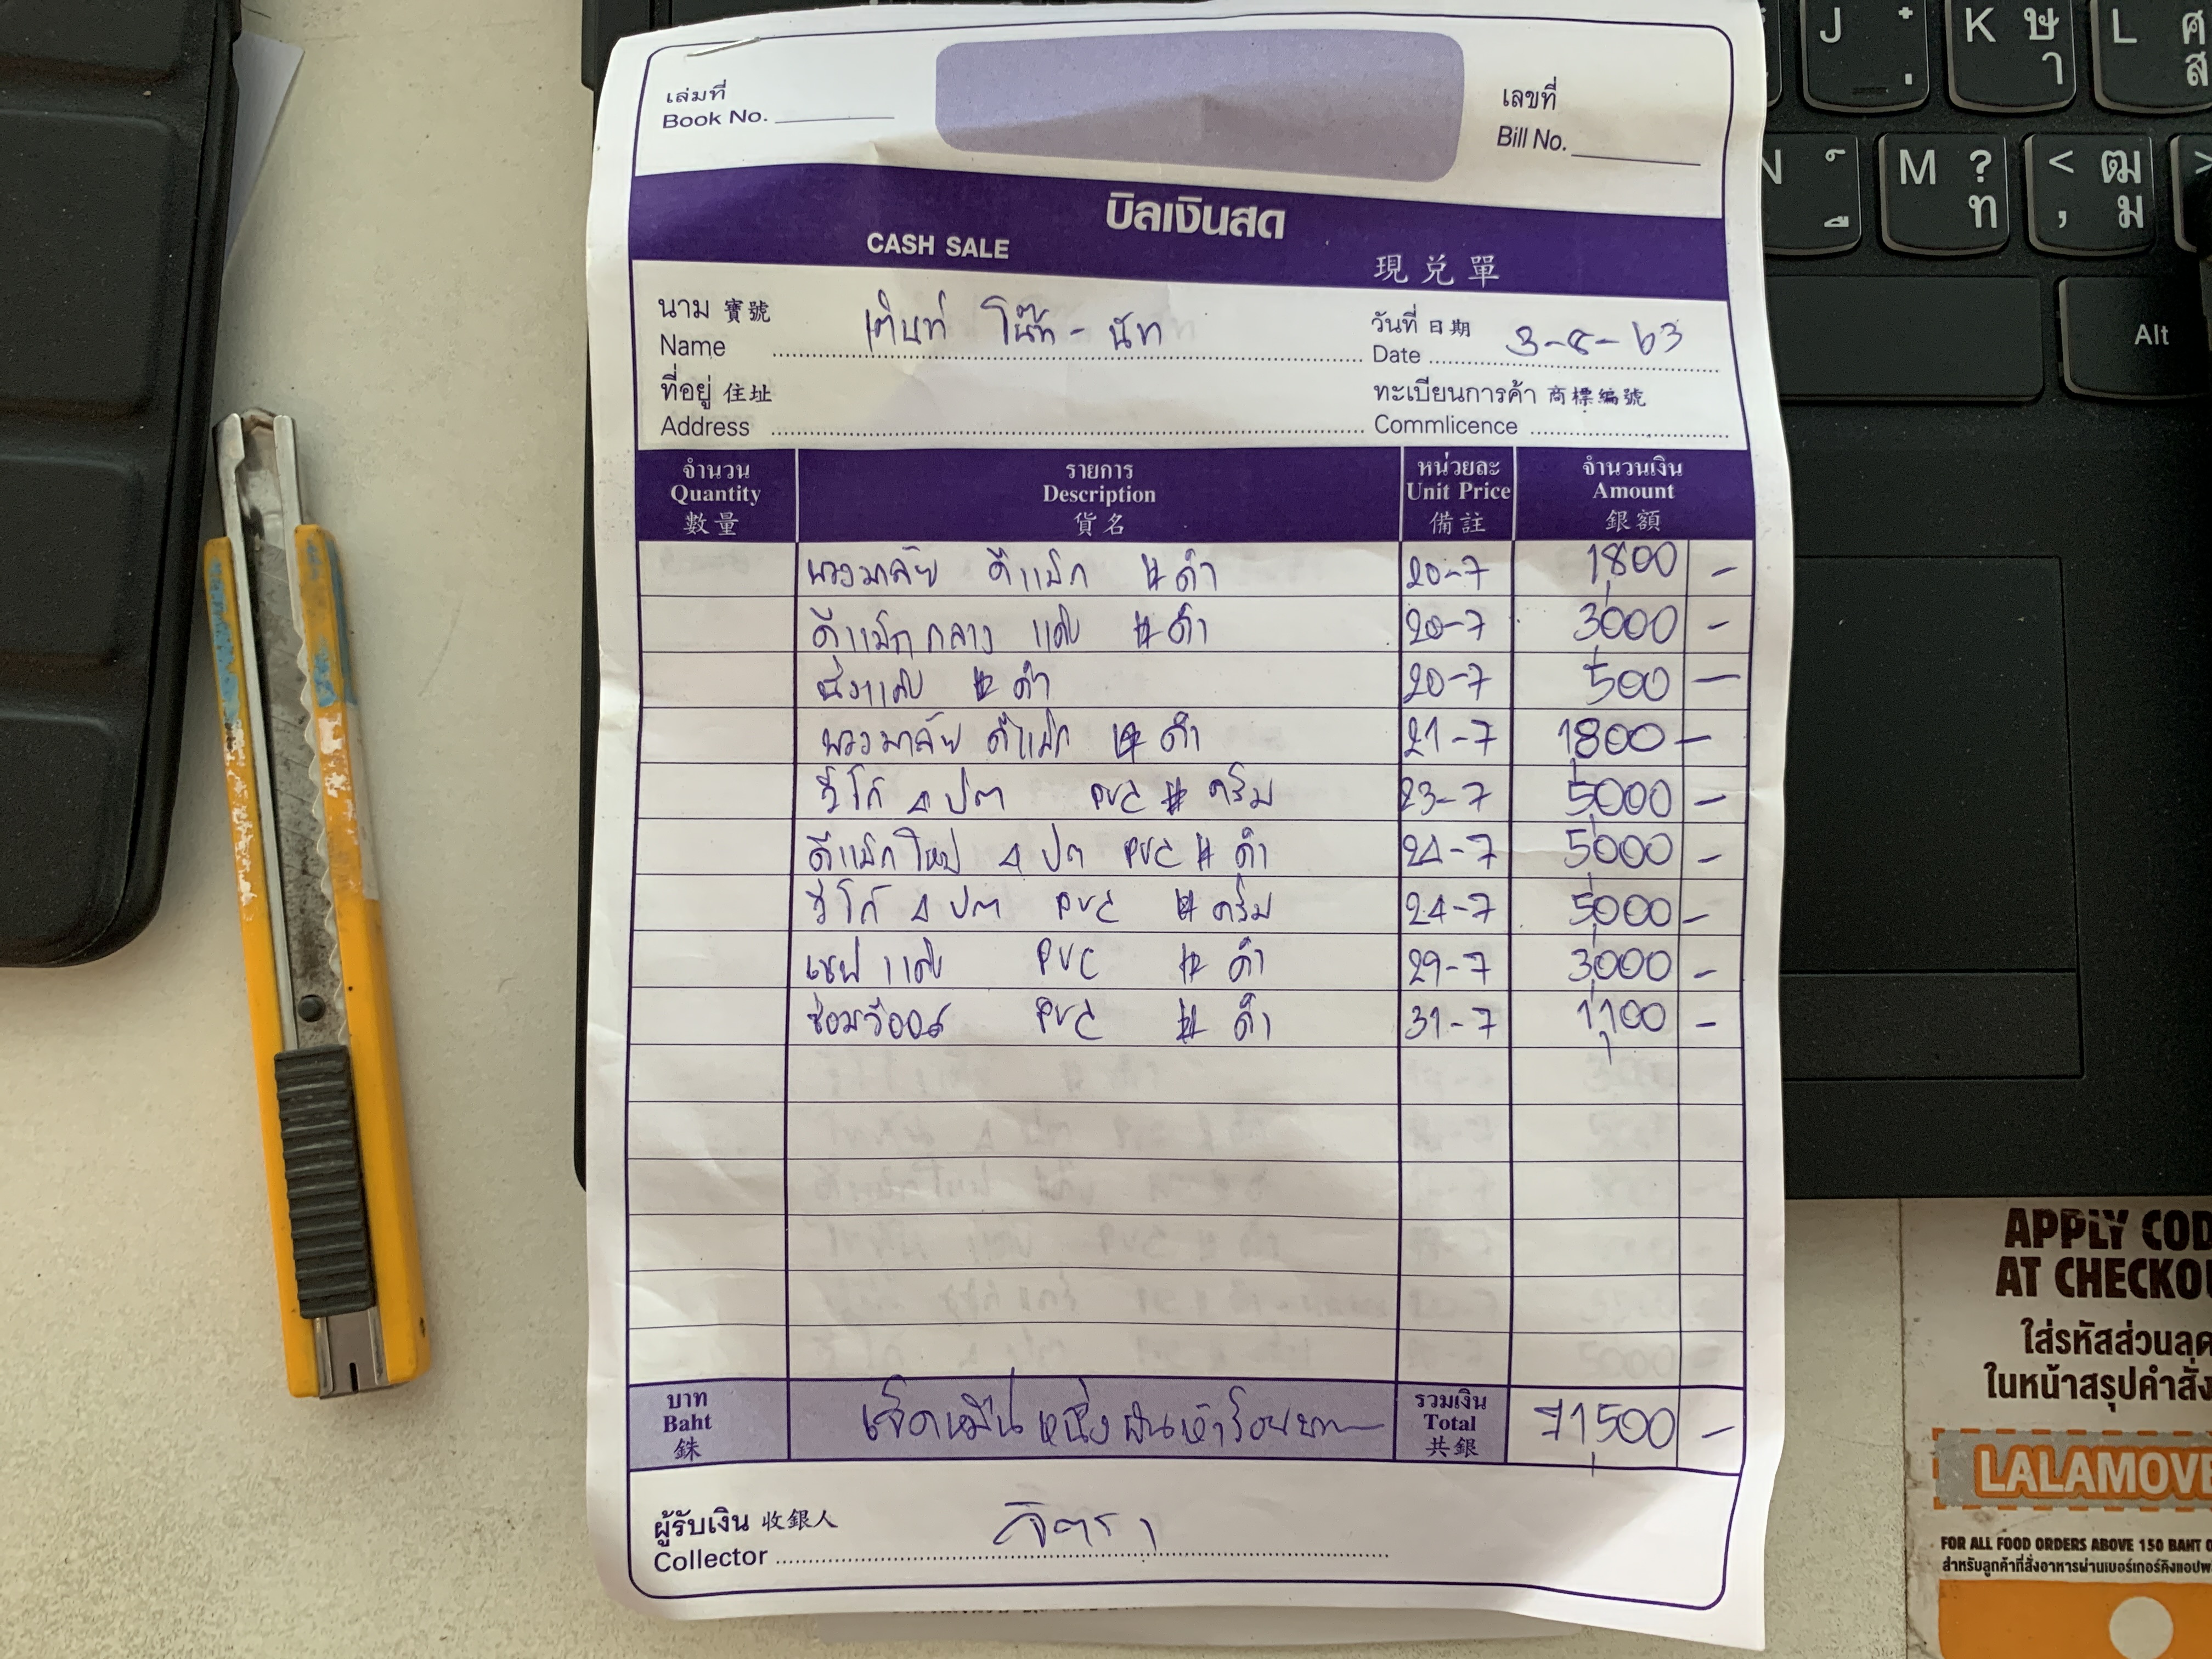 เล่มที่
Book No.
เลขที่
Bill No.
บิลเงินสด
CASH SALE
現兑單
นาม 寶號
Name เต็นท์ โน๊ท - นัท
วันที่ 日期
Date 3-8-63
ที่อยู่ 住址
Address
ทะเบียนการค้า 商標編號
Commlicence
จำนวน รายการ หน่วยละ จำนวนเงิน
Quantity Description Unit Price Amount
數量 貨名 備註 銀額
พวงมาลัย ดีแม็ก # ดำ 20-7 1,800 -
ดีแม็กกลาง แค็บ # ดำ 20-7 3,000 -
แค็บ # ดำ 20-7 500 -
พวงมาลัย ดีแม็ก # ดำ 21-7 1,800 -
วีโก้ 4 ปต PVC # ครีม 23-7 5,000 -
ดีแม็กใหม่ 4 ปต PVC # ดำ 24-7 5,000 -
วีโก้ 4 ปต PVC # ครีม 24-7 5,000 -
เชฟ แค็บ PVC # ดำ 29-7 3,000 -
ซ่อมวีออส PVC # ดำ 31-7 1,100 -
บาท
Baht
銖
เจ็ดหมื่นหนึ่งพันห้าร้อยบาท
รวมเงิน
Total
共銀
71,500 -
ผู้รับเงิน 收銀人
Collector จิตรา
J
K ษ า
L ศ ส
N
M ? ท
< ฒ , ม
Alt
APPLY COD
AT CHECKOU
ใส่รหัสส่วนลด
ในหน้าสรุปคำสั่ง
LALAMOVE
FOR ALL FOOD ORDERS ABOVE 150 BAHT
สำหรับลูกค้าที่สั่งอาหารผ่านเบอร์เกอร์คิงแอปพ